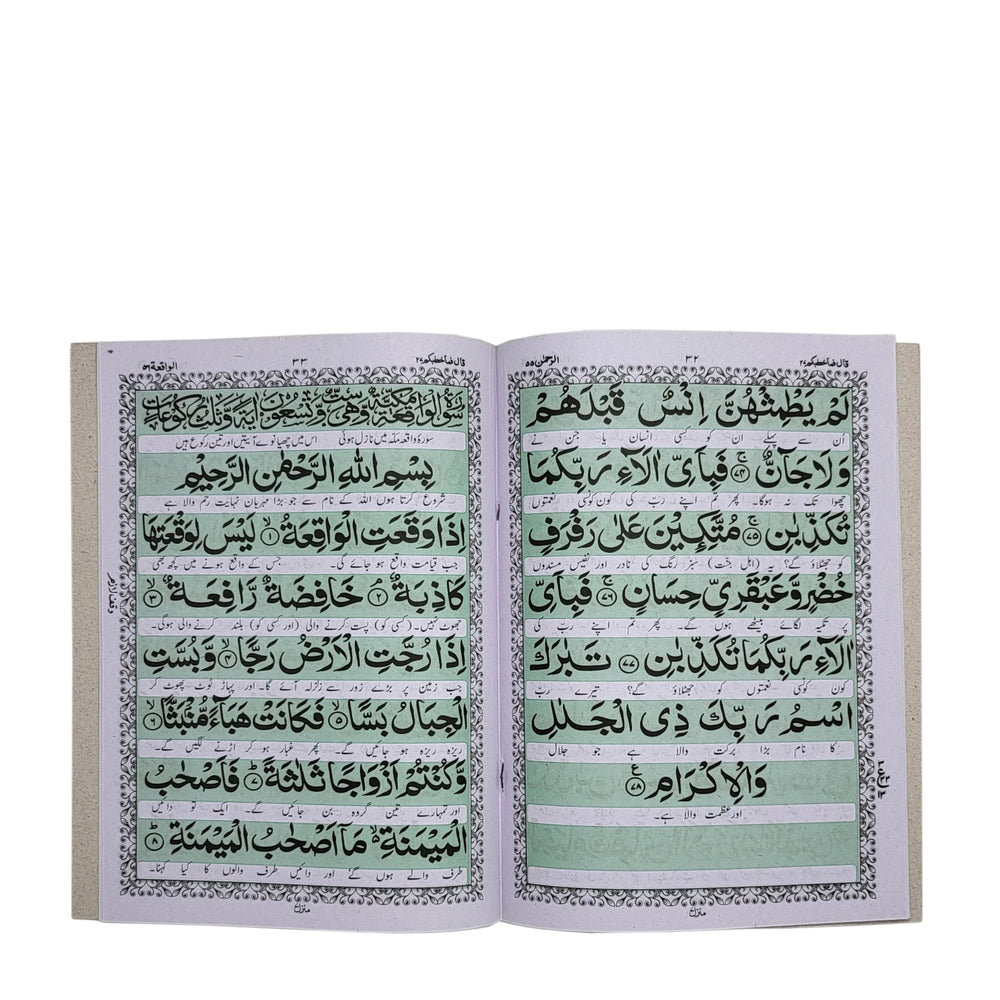 قال فما خطبكم ٢٧
٣٢
الرحمٰن ٥٥
لَمْ يَطْمِثْهُنَّ اِنْسٌ قَبْلَهُمْ
اُن سے پہلے ان کو کسی انسان یا جن نے
وَلَا جَآنٌّ ۚ﴿۷۴﴾ فَبِاَیِّ اٰلَآءِ رَبِّكُمَا
چھوا تک نہ ہوگا۔ پھر تم اپنے ربّ کی کون کونسی نعمتوں
تُكَذِّبٰنِ ۚ﴿۷۵﴾ مُتَّكِـِٕیْنَ عَلٰی رَفْرَفٍ
کو جھٹلاؤ گے؟ یہ (اہل جنت) سبز رنگ کی نادر اور نفیس مسندوں
خُضْرٍ وَّعَبْقَرِیٍّ حِسَانٍ ۚ﴿۷۶﴾ فَبِاَیِّ
پر تکیہ لگائے بیٹھے ہوں گے۔ پھر تم اپنے ربّ کی
اٰلَآءِ رَبِّكُمَا تُكَذِّبٰنِ ﴿۷۷﴾ تَبٰرَكَ
کون کونسی نعمتوں کو جھٹلاؤ گے؟ تیرے ربّ
اسْمُ رَبِّكَ ذِی الْجَلٰلِ
کا نام بڑا برکت والا ہے جو جلال
وَالْاِكْرَامِ ﴿۷۸﴾ ع
اور عظمت والا ہے۔
منزل ٧
قال فما خطبكم ٢٧
٣٣
الواقعة ٥٦
سُوْرَةُ الْوَاقِعَةِ مَكِّیَّةٌ وَّهِیَ سِتٌّ وَّتِسْعُوْنَ اٰیَةً وَّثَلٰثُ رُكُوْعَاتٍ
سورۂ واقعہ مکہ میں نازل ہوئی اس میں چھیانوے آیتیں اور تین رکوع ہیں
بِسْمِ اللهِ الرَّحْمٰنِ الرَّحِیْمِ
شروع کرتا ہوں اللہ کے نام سے جو بڑا مہربان نہایت رحم والا ہے
اِذَا وَقَعَتِ الْوَاقِعَةُ ۙ﴿۱﴾ لَیْسَ لِوَقْعَتِهَا
جب قیامت واقع ہو جائے گی۔ جس کے واقع ہونے میں کچھ بھی
كَاذِبَةٌ ۘ﴿۲﴾ خَافِضَةٌ رَّافِعَةٌ ۙ﴿۳﴾
جھوٹ نہیں۔ (کسی کو) پست کرنے والی (اور کسی کو) بلند کرنے والی ہوگی۔
اِذَا رُجَّتِ الْاَرْضُ رَجًّا ۙ﴿۴﴾ وَّبُسَّتِ
جب زمین پر بڑے زور سے زلزلہ آئے گا۔ اور پہاڑ ٹوٹ پھوٹ کر
الْجِبَالُ بَسًّا ۙ﴿۵﴾ فَكَانَتْ هَبَآءً مُّنْۢبَثًّا ۙ﴿۶﴾
ریزہ ریزہ ہو جائیں گے۔ پھر غبار ہو کر اڑنے لگیں گے۔
وَّكُنْتُمْ اَزْوَاجًا ثَلٰثَةً ؕ﴿۷﴾ فَاَصْحٰبُ
اور تمہارے تین گروہ بن جائیں گے۔ ایک تو دائیں
الْمَیْمَنَةِ ۙ۬ مَاۤ اَصْحٰبُ الْمَیْمَنَةِ ؕ﴿۸﴾
طرف والے ہوں گے اور دائیں طرف والوں کا کیا کہنا۔
منزل ٧